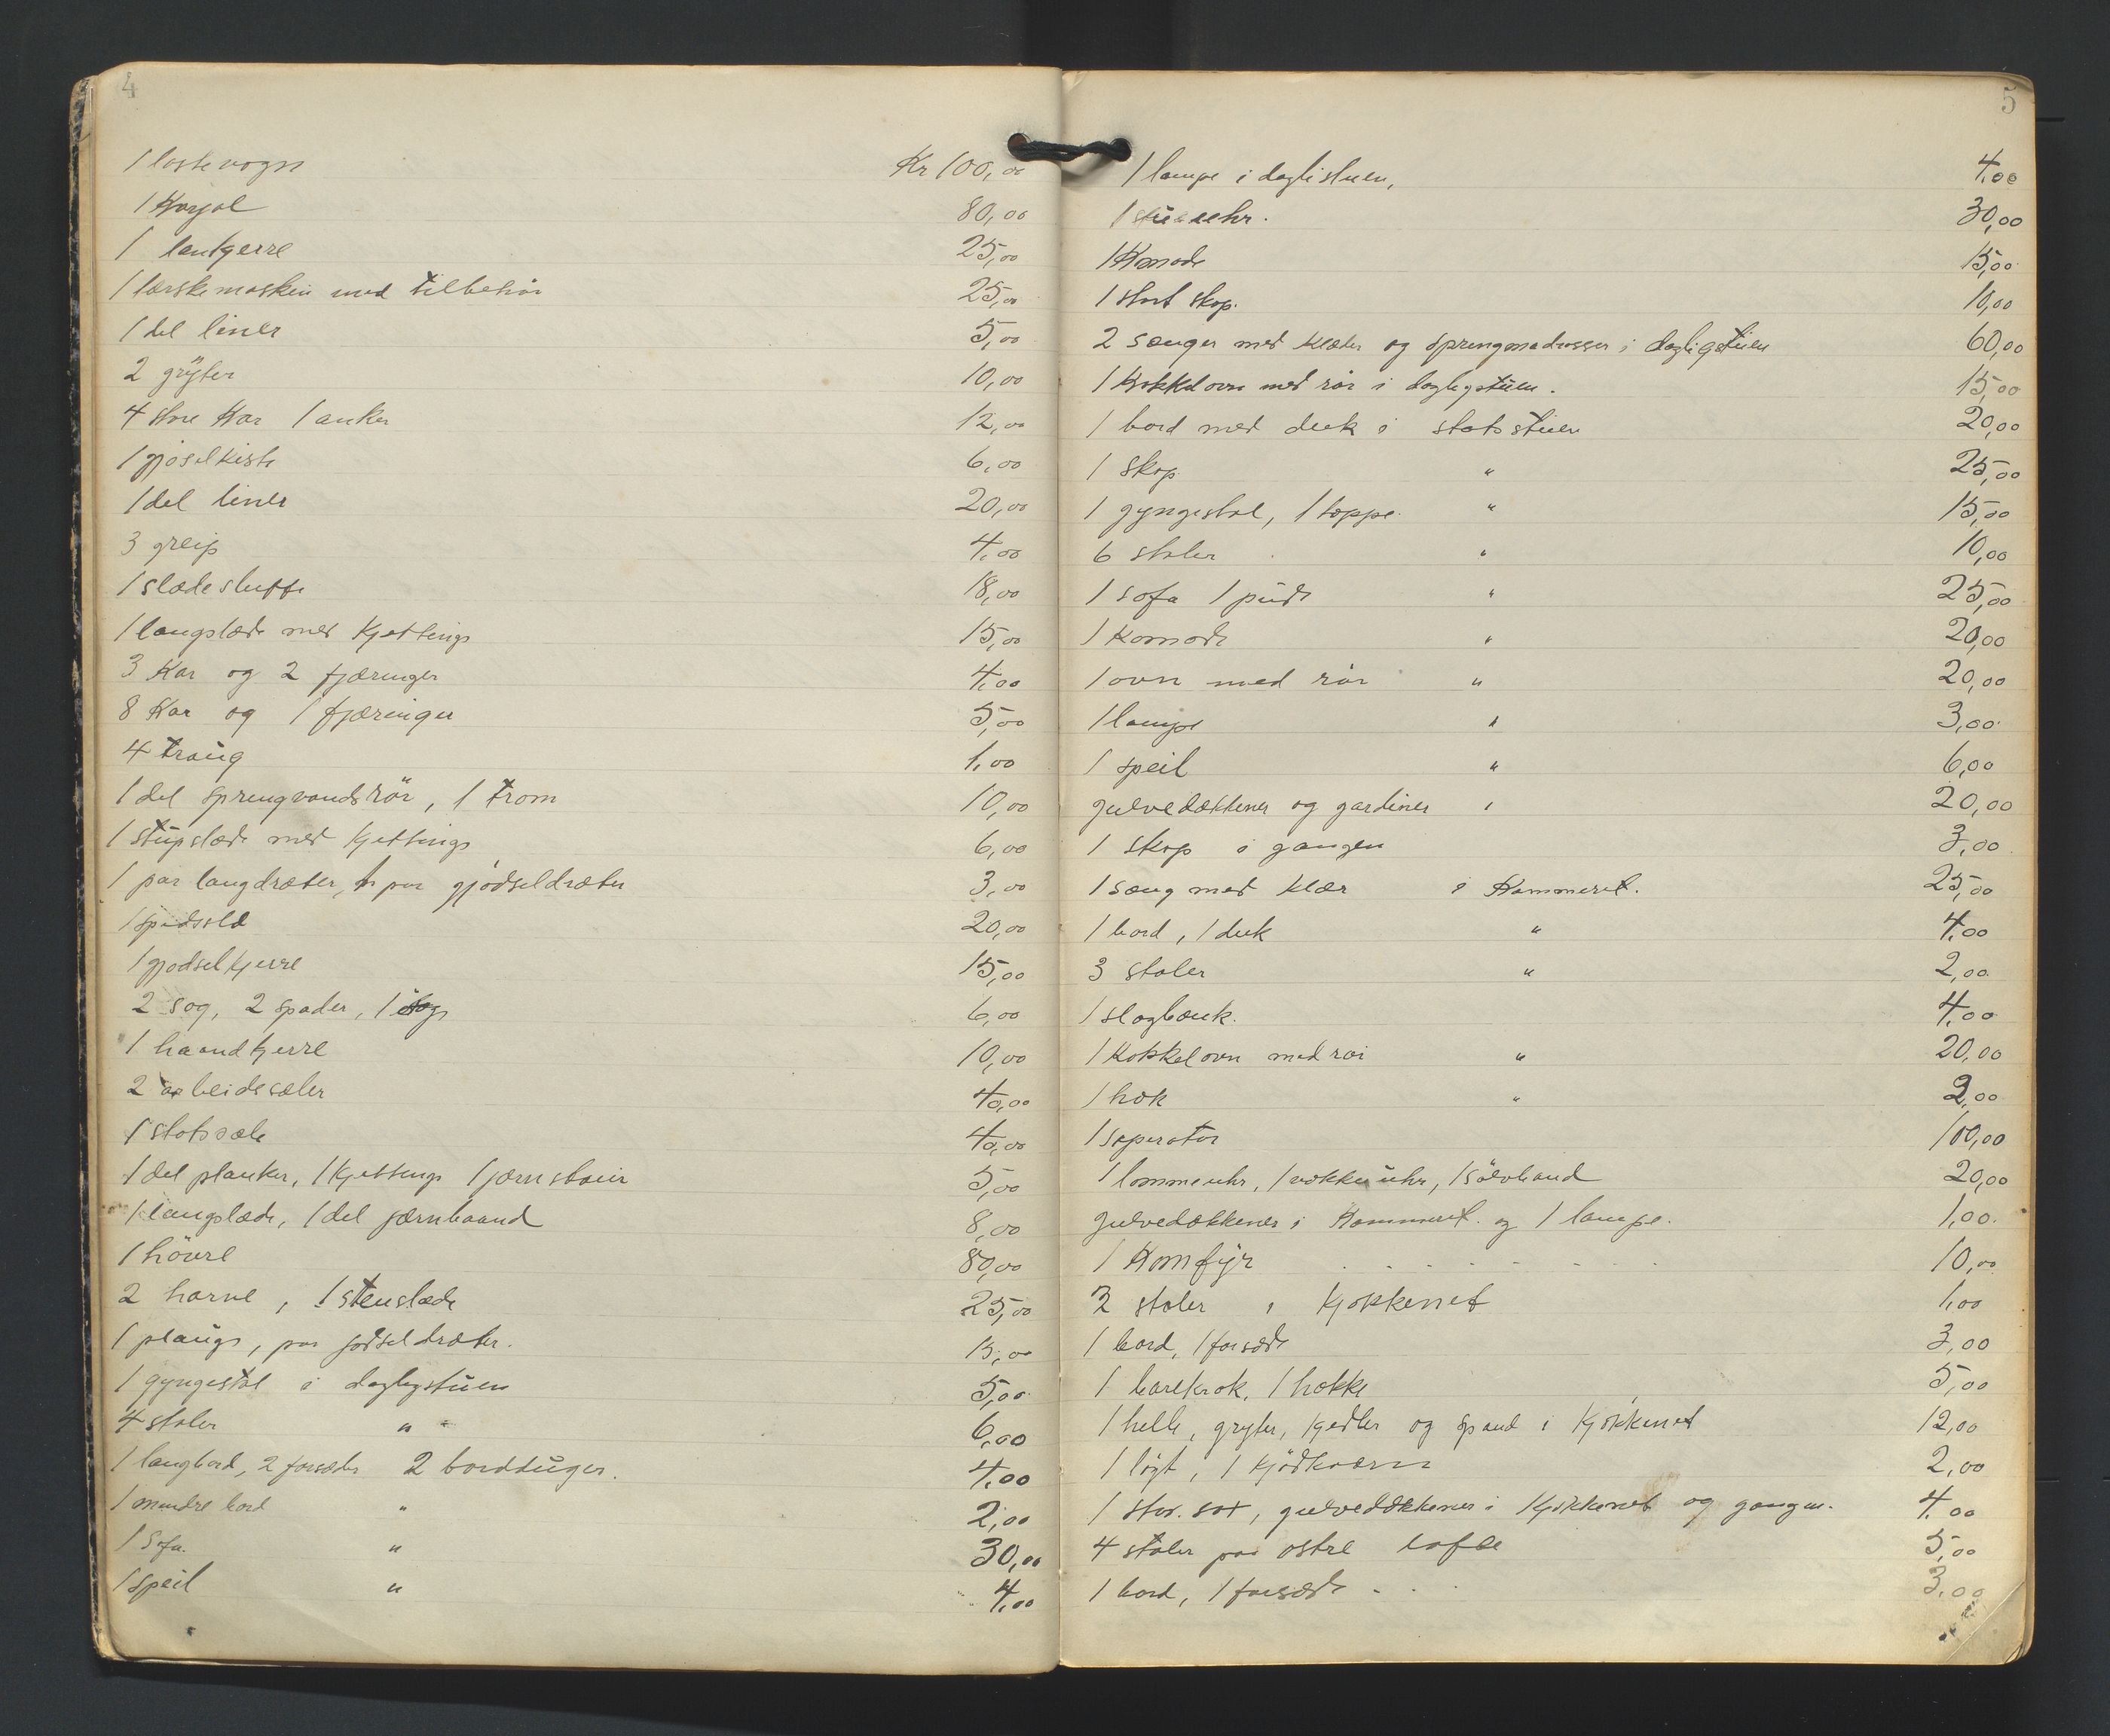 4
1 lastevogn Kr 100,00
1 Karjol 80,00
1 lankjerre 25,00
1 tærskemaskin med tilbehør 25,00
1 del liner 5,00
2 gryter 10,00
4 store Kar 1 anker 12,00
1 gjøselkiste 6,00
1 del liner 20,00
3 greip 4,00
1 slædesluffe 18,00
1 langslæde med Kjetting 15,00
3 Kar og 2 fjæringer 4,00
8 Kar og 1 fjæringer 5,00
4 traug 1,00
1 del sprengvandsrør, 1 trom 10,00
1 stupslæde med Kjettings 6,00
1 par langdræter, par gjødseldræter 3,00
1 spidsslæ 20,00
1 gjødselkjerre 15,00
2 sag, 2 spader, 1 6,00
1 haandkjerre 10,00
2 arbeidssæler 40,00
1 statssæle 40,00
1 del planker, 1 Kjetting 1 jærnstaur 5,00
1 langslæde, 1 del jærnbaand 8,00
1 hövre 80,00
2 harve, 1 stenslæde 25,00
1 plaug, par jødseldræter. 15,00
1 gyngestol i dagligstuen 5,00
4 stoler " 6,00
1 langbord, 2 forsæder 2 bordduger. 4,00
1 mindre bord " 2,00
1 Sofa. " 30,00
1 speil " 4,00
5
1 lampe i daglistuen, 4,00
1 stueuhr. 30,00
1 Komode 15,00
1 stort skap. 10,00
2 senger med klæder og springmadrasser i dagligstuen 60,00
1 Kakkelovn med rør i dagligstuen. 15,00
1 bord med duk i statsstuen 20,00
1 skap " 25,00
1 gyngestol, 1 tæppe " 15,00
6 stoler " 10,00
1 sofa 1 pude " 25,00
1 Komode " 20,00
1 ovn med rør " 20,00
1 lampe " 3,00
1 speil " 6,00
gulvedækkener og gardiner " 20,00
1 skap i gangen 3,00
1 sæng med klær i Kammeret. 25,00
1 bord, 1 duk " 4,00
3 stoler " 2,00
1 slagbænk. 4,00
1 Kakkelovn med rør " 20,00
1 hæk " 2,00
1 seperator 100,00
1 lommeuhr, 1 vækkeuhr, 1 sølvbaand 20,00
gulvedækkener i Kammeret. og 1 lampe. 1,00
1 Komfyr 10,00
2 stoler i Kjøkkenet 1,00
1 bord, 1 forsæde 3,00
1 barekrok, 1 hække 5,00
1 helle, gryter, kjedler og spand i Kjøkkenet 12,00
1 løgt, 1 Kjødkværn 2,00
1 stor. sax, gulvedækkener i Kjøkkenet og gangen. 4,00
4 stoler paa østre lofte 5,00
1 bord, 1 forsæde - 3,00